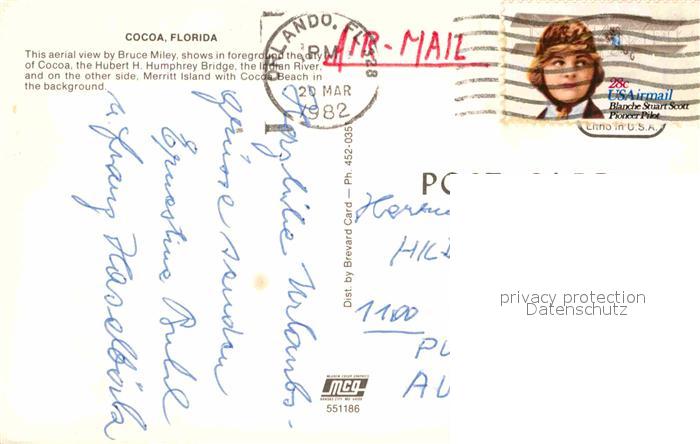 COCOA, FLORIDA
This aerial view by Bruce Miley, shows in foreground the city
of Cocoa, the Hubert H. Humphrey Bridge, the Indian River,
and on the other side, Merritt Island with Cocoa Beach in
the background.
ORLANDO, FL 328
PM
20 MAR
1982
AIR-MAIL
28c
USAirmail
Blanche Stuart Scott
Pioneer Pilot
Litho in U.S.A.
Herzliche Urlaubs-
grüsse senden
Ernestine
u. Franz
Dist. by Brevard Card — Ph. 452-035
POST CARD
1100
AU
privacy protection
Datenschutz
mcg
551186